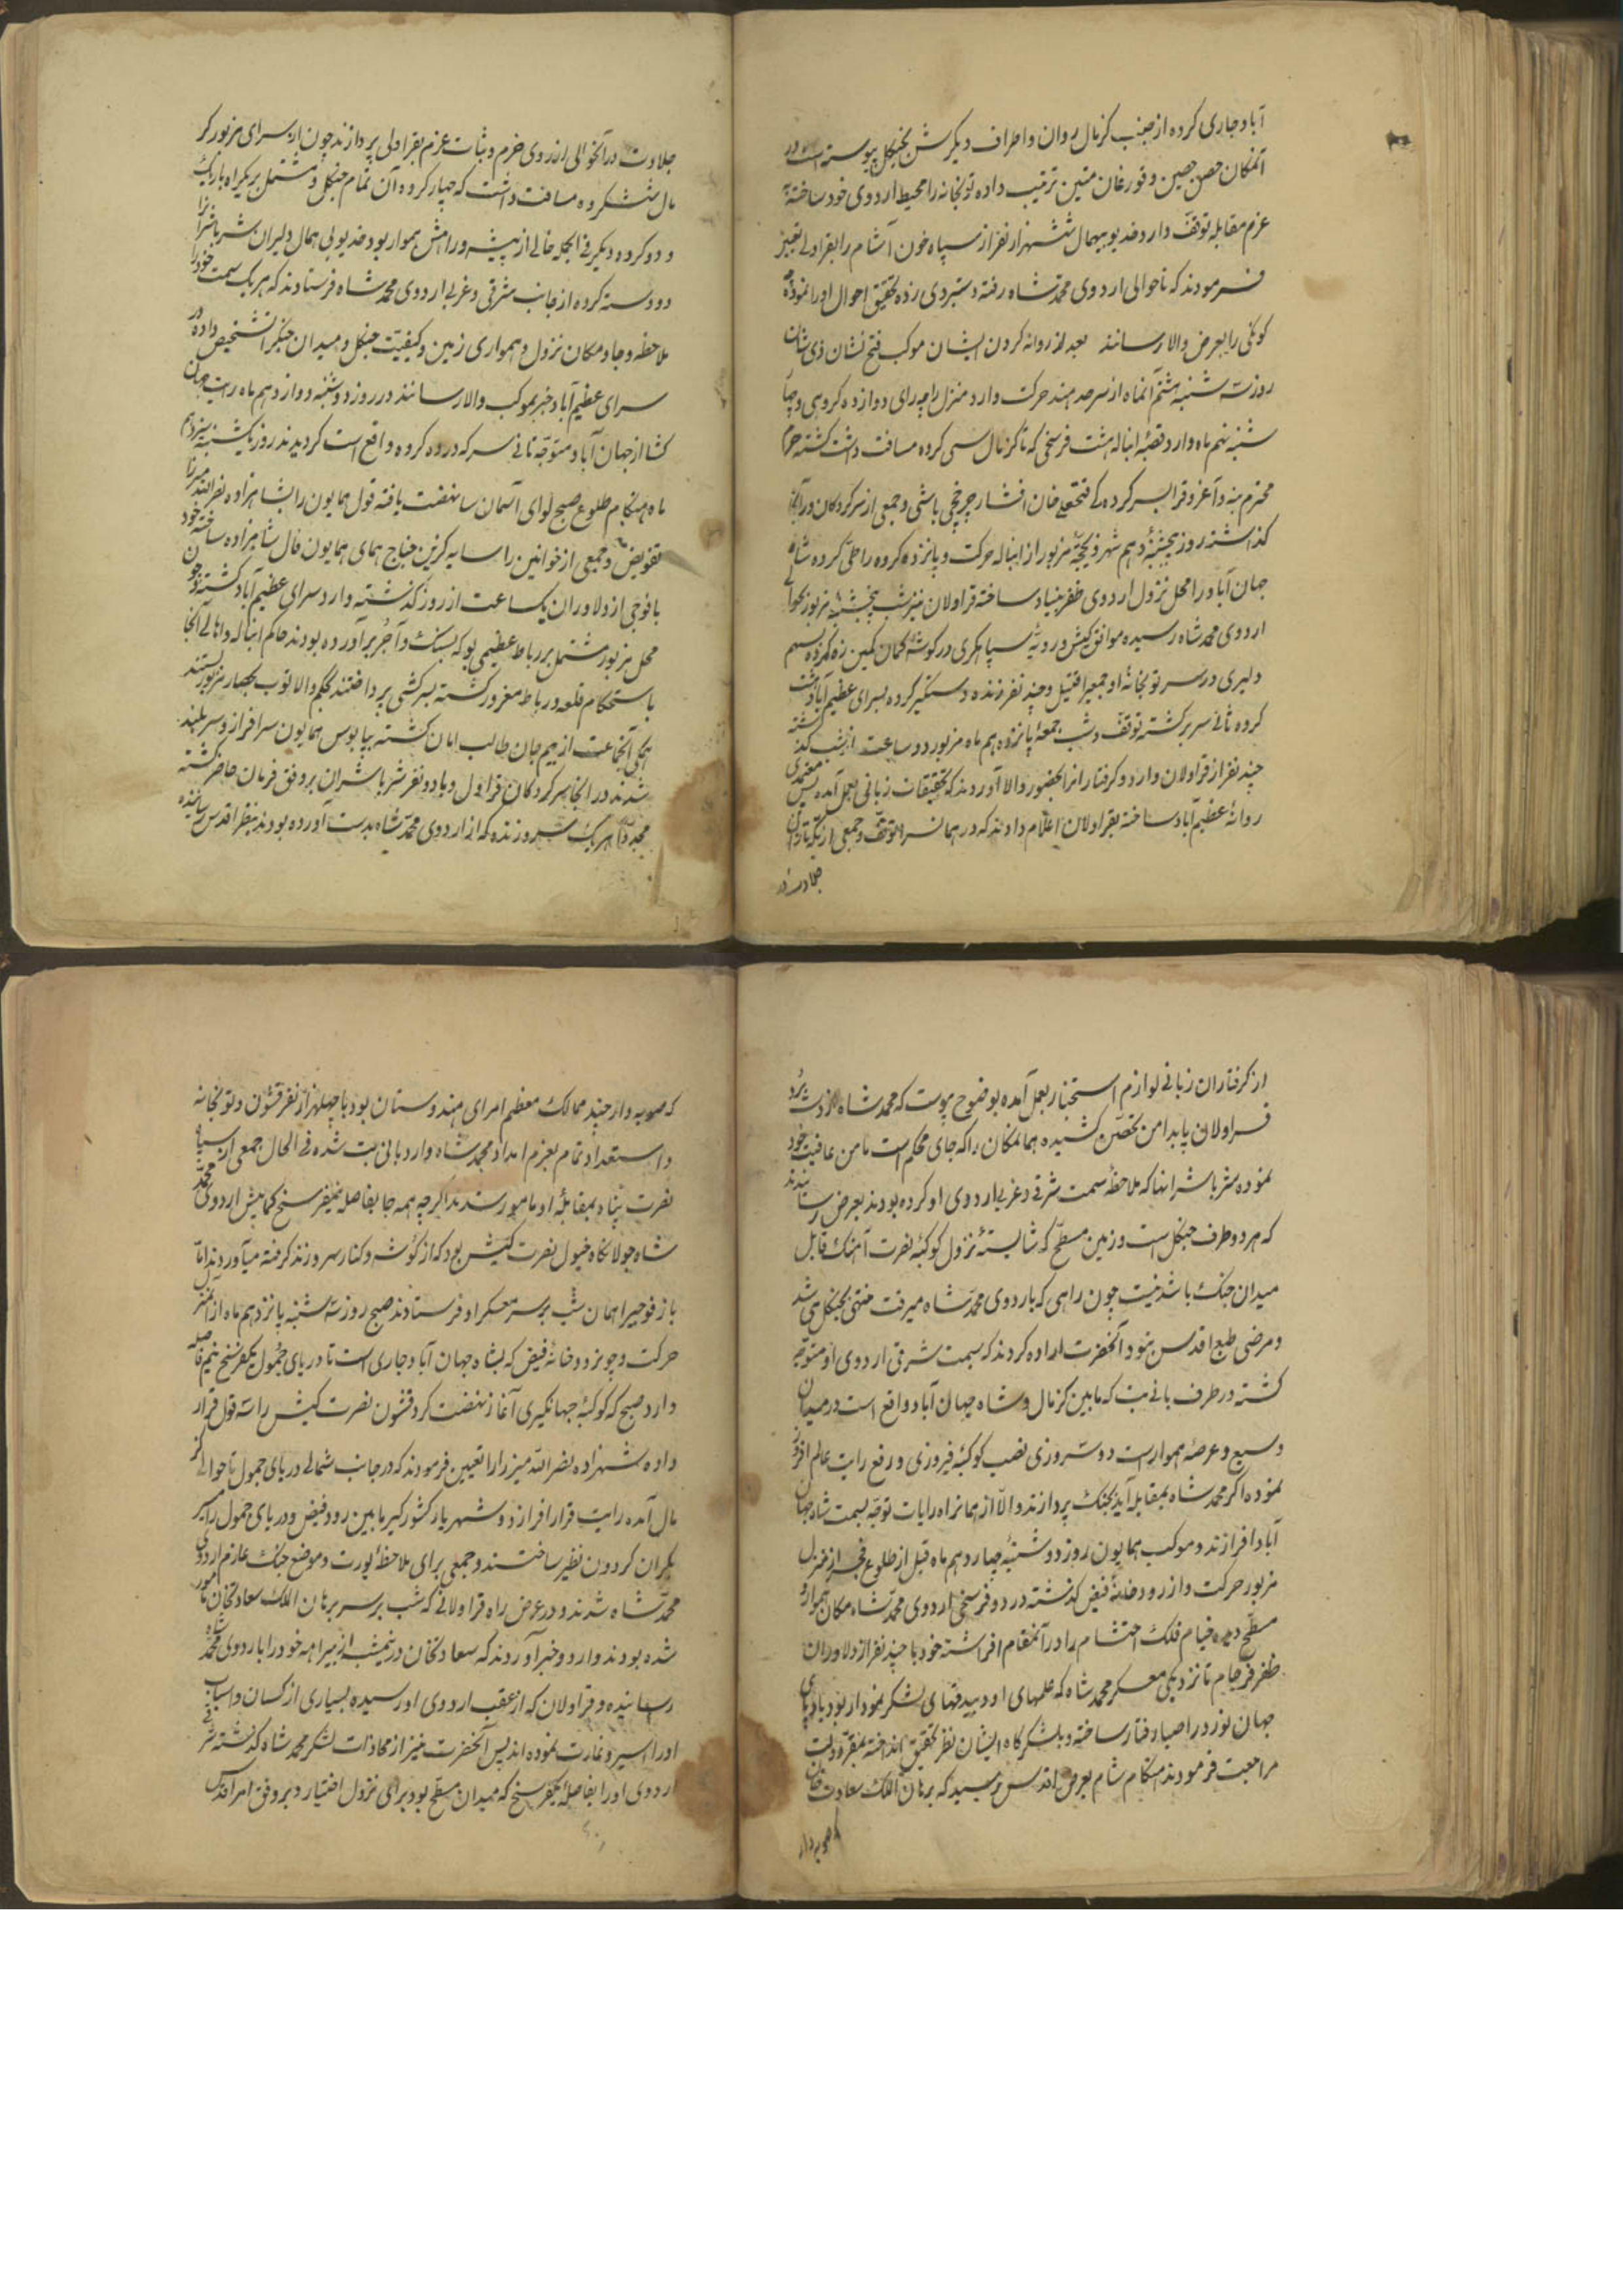 آباد جاری کرده از جنب کرنال روان و اطراف دیکرش بجنکل پیوسته است در
آنمکان حصن حصین و قورغان متین ترتیب داده توپخانه را محیط اردوی خود ساخته
عزم مقابله توقف دارد خدیو بیهمال ششهزار نفر از سپاه خون آشام را بقراولی تعیین
فرمودند که تا حوالی اردوی محمد شاه رفته دستبردی زده تحقیق احوال او را نموده
را بعرض والا رسانند بعد از روانه کردن ایشان موکب فتح نشان ذی شان
روز سه شنبه هشتم آنماه از سرهند حرکت وارد منزل راجه رای دوازده کروهی و چهار
شنبه نهم ماه وارد قصبهٔ انباله هشت فرسخی که تا کرنال سی کروه مسافت داشت کشته حرم
محترم و آغرق را بسرکرده کی فتحعلی خان افشار چرخچی باشی و جمعی از سرکردکان در آنجا
کذاشته روز پنجشنبهٔ دهم شهر ذیحجهٔ مزبور از انباله حرکت و پانزده کروه راه طی کرده شاه
جهان آباد را محل نزول اردوی ظفر بنیاد ساخته قراولان نیز شب پنجشنبهٔ مزبور بحوالی
اردوی محمد شاه رسیده موافق کیش و رویهٔ سپاهکری در کوشهٔ کمان کمین زه کرده
دلیری در سر توپخانهٔ او جمعی را قتیل و چند نفر زنده دستکیر کرده بسرای عظیم آباد
کروه ثانی سر برکشته توقف و شب جمعهٔ یانزدهم ماه مزبور دو ساعت از شب کذشته
چند نفر از قراولان وارد و کرفتار انرا بحضور والا آوردند که تحقیقات زبانی بعمل آمده پس
روانهٔ عظیم آباد ساخته بقراولان اعلام دادند که در همان سرا توقف و جمعی از یکه تازان
جلادت در
جلادت در آنحوالی از روی حزم و ثبات عزم بقراولی پردازند چون از سرای مزبور کر
نال شش کروه مسافت داشت که چهار کروه آن تمام جنکل و مشتمل بر یکراه باریک
و دو کروه دیکر فی الجمله خالی از بیشه و راهش هموار بود خدیو بی همال دلیران شیر باشرا
دو دسته کرده از جانب شرقی و غربی اردوی محمد شاه فرستادند که هر یک سمت خود را
ملاحظه و جا و مکان نزول و همواری زمین و کیفیت جنکل و میدان جنک را تشخیص داده در
سرای عظیم آباد خبر بموکب والا رسانند در روز دوشنبه دوازدهم ماه رایت جهان
کشا از جهان آباد متوجه ثانی سر که در ده کروه واقع است کردیدند روز یکشنبه سیزدهم
ماه هنکام طلوع صبح لوای آسمان سا نهضت یافته قول همایون را بشاهزاده نصرالله میرزا
تفویض و جمعی از خوانین را سایه کزین جناح همای همایون فال شاهزاده ساخته خود
با فوجی از دلاوران یکساعت از روز کذشته وارد سرای عظیم آباد کشته چون
محل مزبور مشتمل بر رباط عظیمی بود که بسنک و آجر بر آورده بودند حاکم انباله و اهالی آنجا
باستحکام قلعه و رباط مغرور کشته بسرکشی پرداختند بحکم والا توپ بحصار مزبور بستند
همکی آنجماعت از بیم جان طالب امان کشته بپابوس همایون سرافراز و سربلند
شدند در آنجا سرکردکان قراول و یا دو نفر شیر باشران بر وفق فرمان حاضر کشته
مجددا هر یک سر و زنده که از اردوی محمد شاه بدست آورده بودند بنظر اقدس رسانیده
از کرفتاران زبانی لوازم استخبار بعمل آمده بوضوح پیوست که محمد شاه از دستبرد
قراولان پا بدامن تحصن کشیده همانمکان را که جای محکم است مامن عافیت خود
نموده شیر باشرانها که ملاحظهٔ سمت شرقی و غربی اردوی او کرده بودند بعرض رسانیدند
که هر دو طرف جنکل است و زمین مسطح که شایستهٔ نزول کوکبهٔ نصرت آهنک قابل
میدان جنک باشد نیست چون راهی که باردوی محمد شاه میرفت منتهی بجنکل می شد
و مرضی طبع اقدس نبود آنحضرت اراده کردند که بسمت شرقی اردوی او متوجه
کشته در طرف پانی پت که مابین کرنال و شاه جهان آباد واقع است در میدان
وسیع و عرصهٔ هموار است دو سه روزی نصب کوکبهٔ فیروزی و رفع رایت عالم افروز
نموده اکر محمد شاه بمقابله آید بجنک پردازند و الا از همانراه رایات توجه بسمت شاه جهان
آباد افرازند و موکب همایون روز دوشنبهٔ چهاردهم ماه قبل از طلوع فجر از منزل
مزبور حرکت و از رودخانهٔ فیض کذشته در دو فرسخی اردوی محمد شاه مکان هموار و
مسطح دیده خیام فلک احتشام را در آنمقام افراشته خود با چند نفر از دلاوران
ظفر فرجام تا نزدیکی معسکر محمد شاه که علمهای او و بیدقهای لشکر نمودار بود بادپای
جهان نورد را صبا رفتار ساخته و بلشکرکاه ایشان نظر تحقیق انداخته بمقر دولت
مراجعت فرمودند هنکام شام بعرض اقدس رسید که برهان الملک سعادت خان
صوبه دار
که صوبه دار چند ممالک معظم امرای هندوستان بود با چهلهزار نفر قشون و توپخانه
و استعداد تمام بعزم امداد محمد شاه وارد پانی پت شده فی الحال جمعی از سپاه
نصرت پناه بمقابلهٔ او مامور شدند اکر چه همه جا بفاصله نیمفرسخ کمابیش اردوی محمد
شاه جولانکاه خیول نصرت کیش بود که از کوشه و کنار سر و زنده کرفته میآوردند اما
باز فوجی را همان شب بر سر معسکر او فرستادند صبح روز سه شنبه پانزدهم ماه از آنمنزل
حرکت و چون رودخانهٔ فیض که بشاه جهان آباد جاری است تا دریای جمول یکفرسخ نیم فاصله
دارد صبح که کوکبهٔ جهانکیری آغاز نهضت کرد قشون نصرت کیش را سه قول قرار
داده شهزاده نصرالله میرزا را تعیین فرمودند که در جانب شمالی دریای جمول تا حوالی کر
نال آمده رایت قرار افرازد و شهریار کشورکیر مابین رود فیض و دریای جمول را سیر
یکران کردون نظیر ساختند و جمعی برای ملاحظهٔ یورت و موضع جنک عازم اردوی
محمد شاه شدند و در عرض راه قراولانی که شب بر سر برهان الملک سعادتخان مامور
شده بودند وارد و خبر آوردند که سعادتخان در نیمشب از بیراهه خود را باردوی محمد شاه
رسانیده و قراولان که از عقب اردوی او رسیده بسیاری از کسان و اسباب
او را اسیر و غارت نموده اند پس آنحضرت نیز از محاذات لشکر محمد شاه کذشته شرقی
اردوی او را بفاصله یکفرسخ که میدان مسطح بود برای نزول اختیار و بر وفق امر اقدس